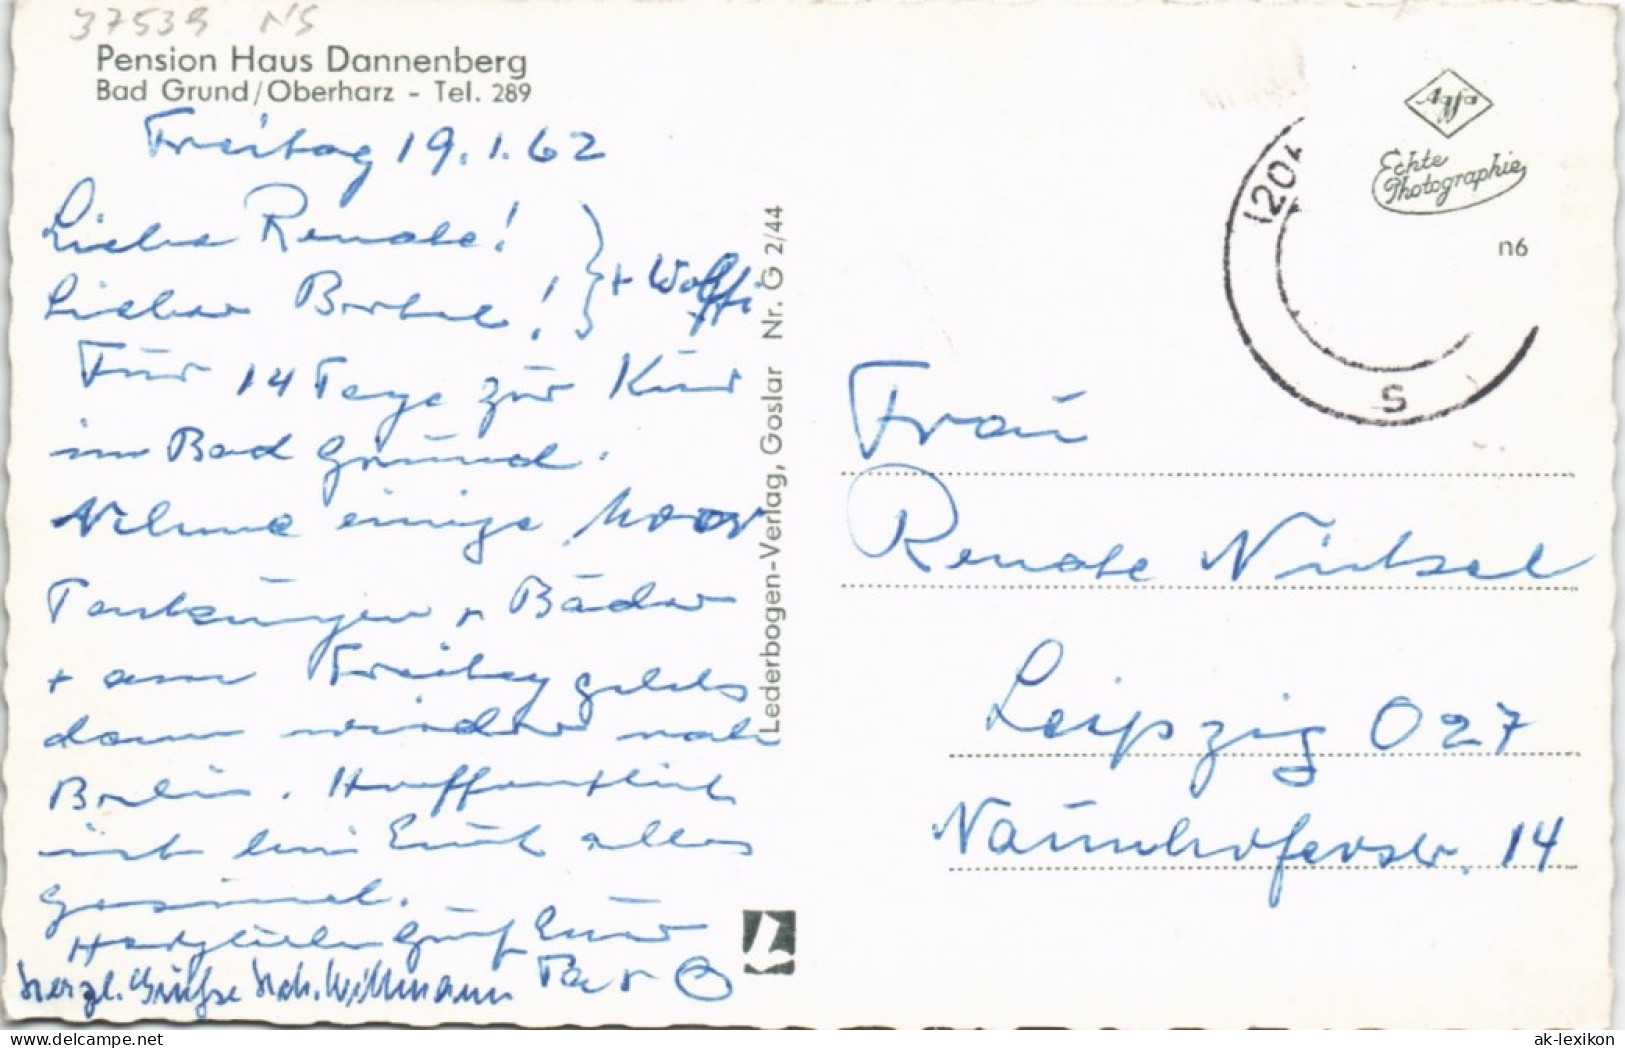 37539 NS
Pension Haus Dannenberg
Bad Grund/Oberharz - Tel. 289
Freitag 19.1.62
Liebe Renate!
Lieber Bertel! } + Wolffi
Für 14 Tage zur Kur
im Bad Grund.
Nehme einige Moor
Packungen + Bäder
+ am Freitag gehts
dann wieder nach
Berlin. Hoffentlich
ist bei Euch alles
gesund.
Herzlichen Gruß Euer
Herzl. Grüße Willmann
Lederbogen-Verlag, Goslar Nr. G 2/44
Agfa
Echte
Photographie
n6
(20
s
Frau
Renate Nitzsel
Leipzig O27
Naunhoferstr. 14
www.delcampe.net
ak-lexikon